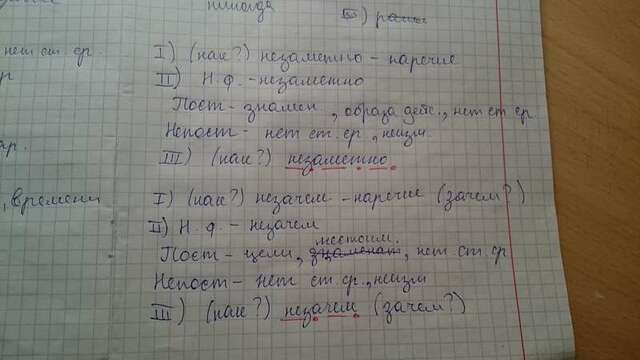 никогда
III) раны
нет ст. ср.
I) (как?) незаметно - наречие
II) Н.ф. - незаметно
Пост - знамен, образа дейс., нет ст ср
Непост - нет ст. ср, неизм
III) (как?) незаметно
, времени
I) (как?) незачем - наречие (зачем?)
II) Н.ф. - незачем
местоим.
Пост - цели, знаменат, нет ст. ср
Непост - нет ст. ср., неизм
III) (как?) незачем (зачем?)